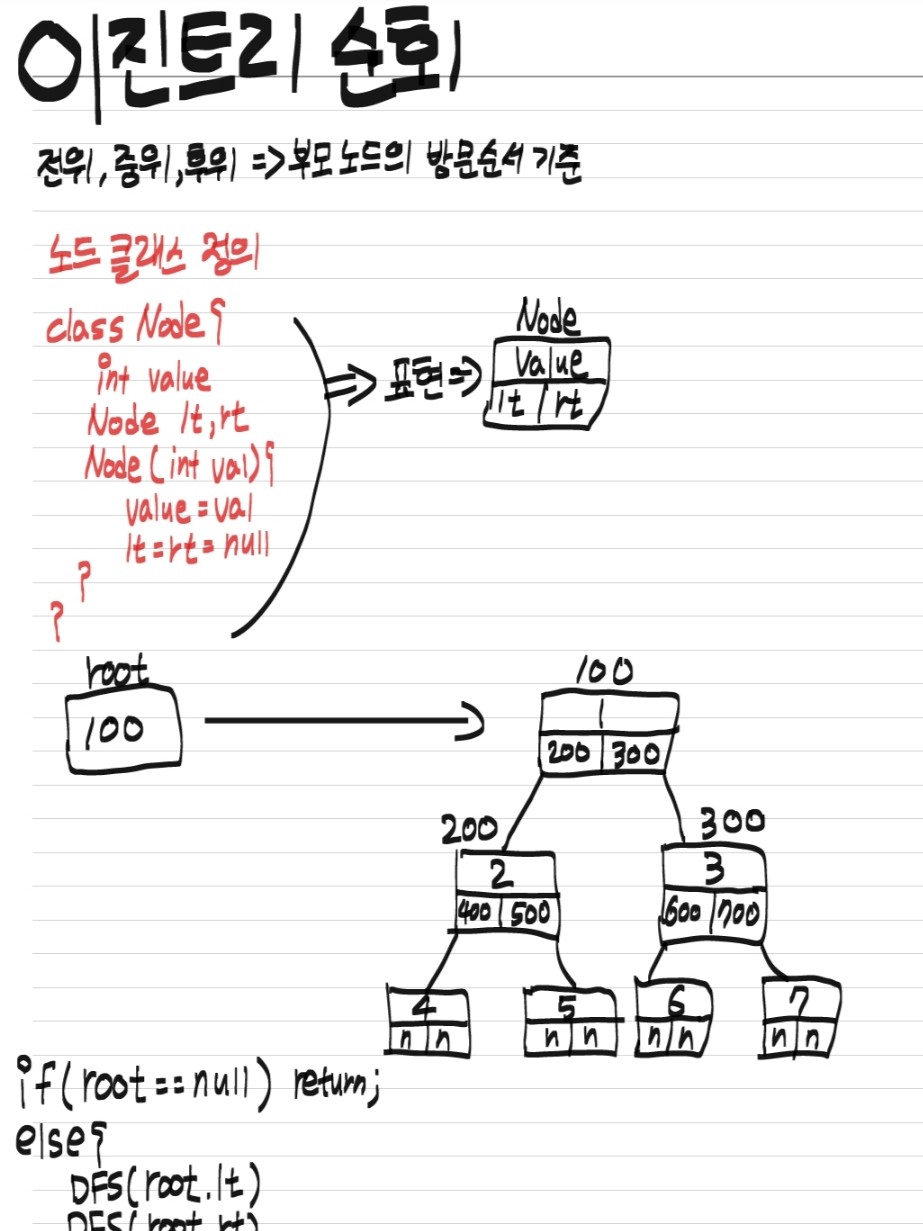 이진트리 순회
전위, 중위, 후위 => 부모노드의 방문순서 기준
노드 클래스 정의
class Node{
int value
Node lt, rt
Node(int val){
value = val
lt = rt = null
}
}
=> 표현 =>
Node
value
lt rt
root
100
100
1
200 300
200
2
400 500
300
3
600 700
4
n n
5
n n
6
n n
7
n n
if(root == null) return;
else{
DFS(root.lt)
DFS(root.rt)